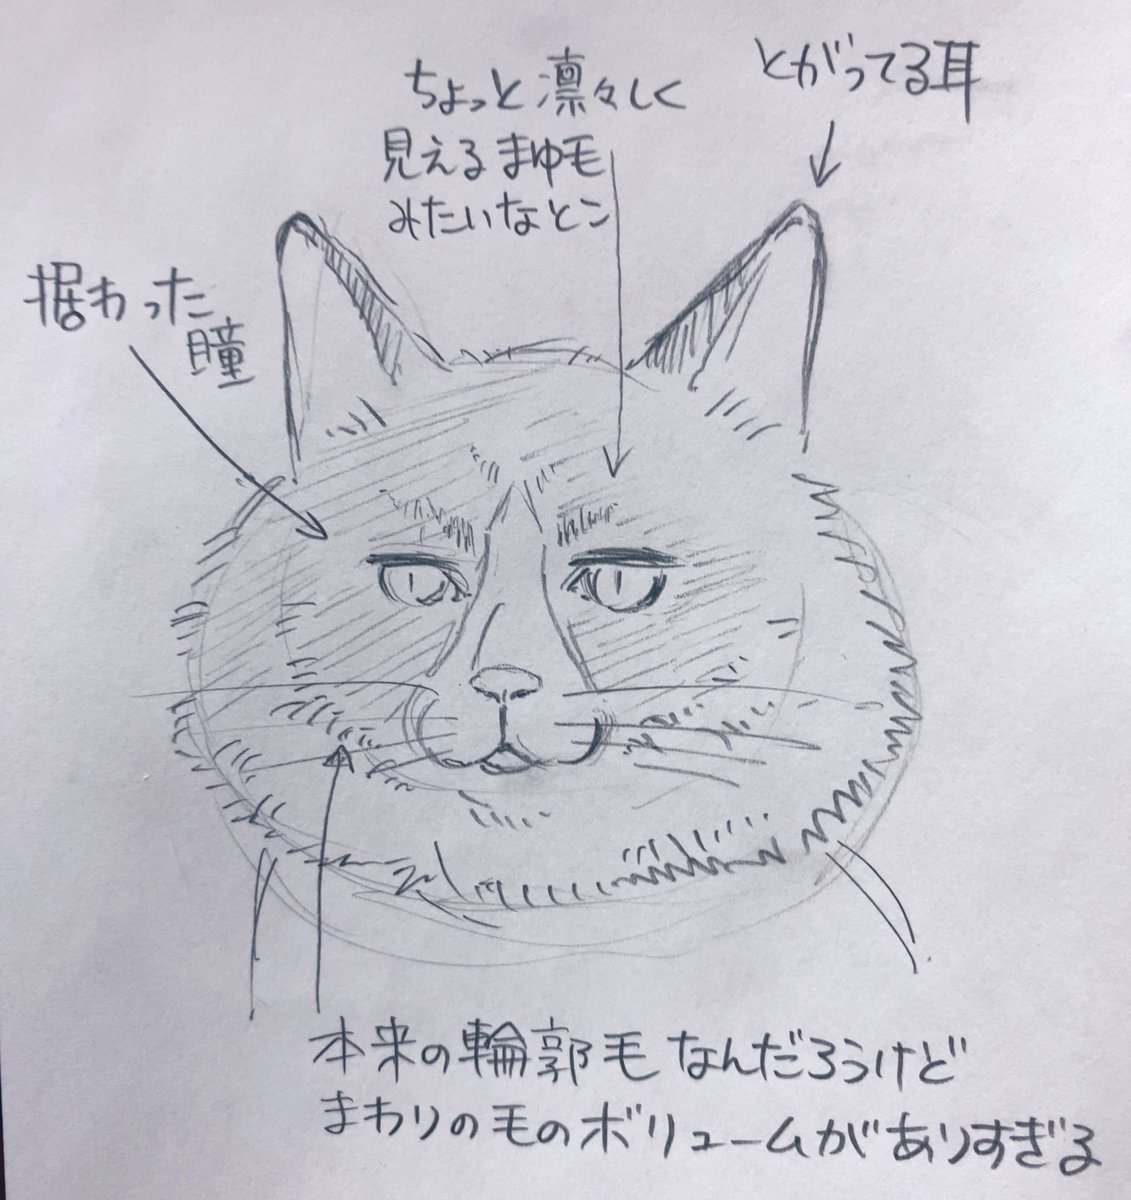 とがってる耳
ちょっと凛々しく
見えるまゆ毛
みたいなとこ
据わった
瞳
本来の輪郭毛なんだろうけど
まわりの毛のボリュームがありすぎる